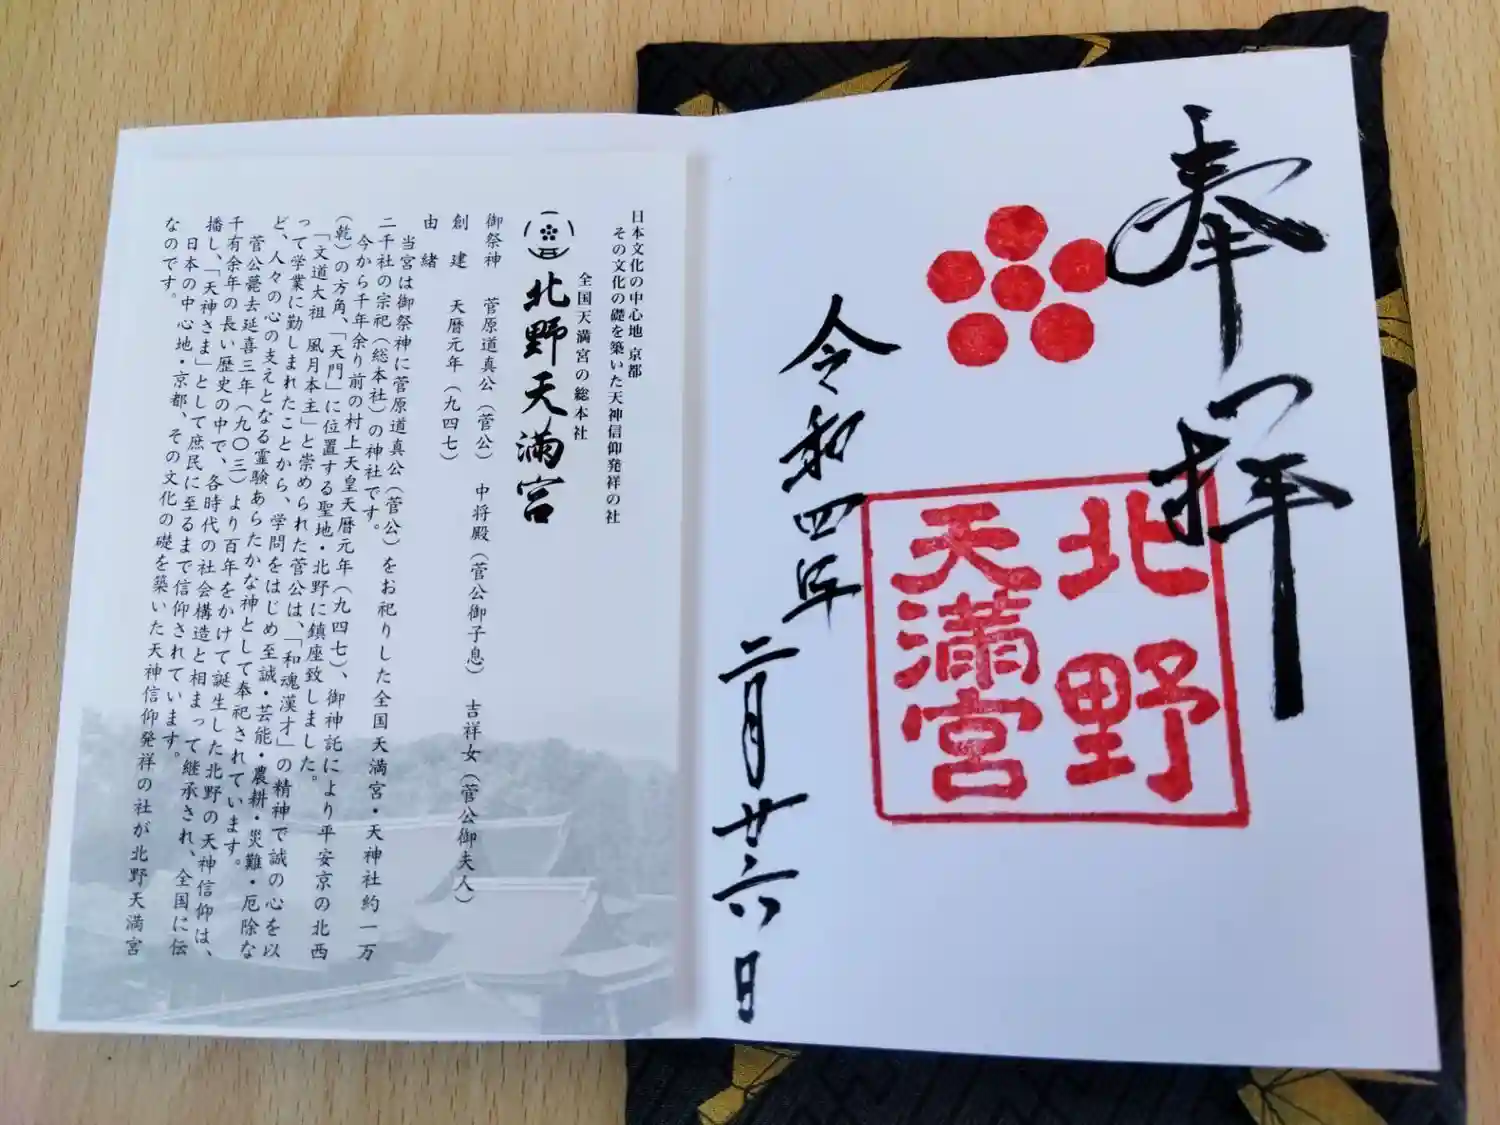 奉拝
北野
天満宮
令和四年
二月廿六日
日本文化の中心地 京都
その文化の礎を築いた天神信仰発祥の社
全国天満宮の総本社
北野天満宮
御祭神 菅原道真公（菅公） 中将殿（菅公御子息） 吉祥女（菅公御夫人）
創建 天暦元年（九四七）
由緒
当宮は御祭神に菅原道真公（菅公）をお祀りした全国天満宮・天神社約一万
二千社の宗祀（総本社）の神社です。
今から千年余り前の村上天皇天暦元年（九四七）、御神託により平安京の北西
（乾）の方角、「天門」に位置する聖地・北野に鎮座致しました。
「文道大祖 風月本主」と崇められた菅公は、「和魂漢才」の精神で誠の心を以
って学業に勤しまれたことから、学問をはじめ至誠・芸能・農耕・災難・厄除な
ど、人々の心の支えとなる霊験あらたかな神として奉祀されています。
菅公薨去延喜三年（九〇三）より百年をかけて誕生した北野の天神信仰は、
千有余年の長い歴史の中で、各時代の社会構造と相まって継承され、全国に伝
播し、「天神さま」として庶民に至るまで信仰されています。
日本の中心地・京都、その文化の礎を築いた天神信仰発祥の社が北野天満宮
なのです。